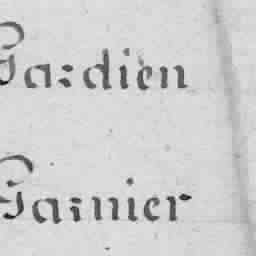 Gardien
Garnier